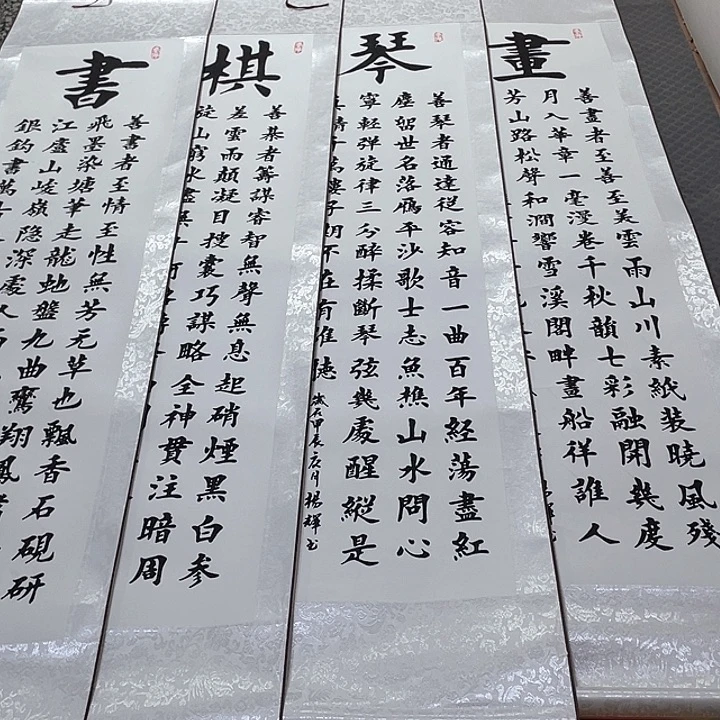 畫
善畫者至善至美雲雨山川素紙装曉風殘
月入華章一毫漫卷千秋韻七彩融開幾度
芳山路松聲和澗響雪溪閣畔畫船徉誰人
琴
善琴者通達從容知音一曲百年經蕩盡紅
塵留世名落雁平沙歌士志魚樵山水問心
寧輕弹旋律三分醉揉斷琴弦幾處醒縱是
不在有誰聽
甲辰
月楊輝書
棋
善棊者籌謀睿智無聲無息起硝煙黑白参
差雲雨顛凝目搜囊巧謀略全神貫注暗周
旋山窮水盡
書
善書者至情至性無芳元草也飄香石硯研
飛墨染塘華走龍虵盤九曲鸞翔鳳
江廬山峻嶺隐深處人
銀鈎書萬